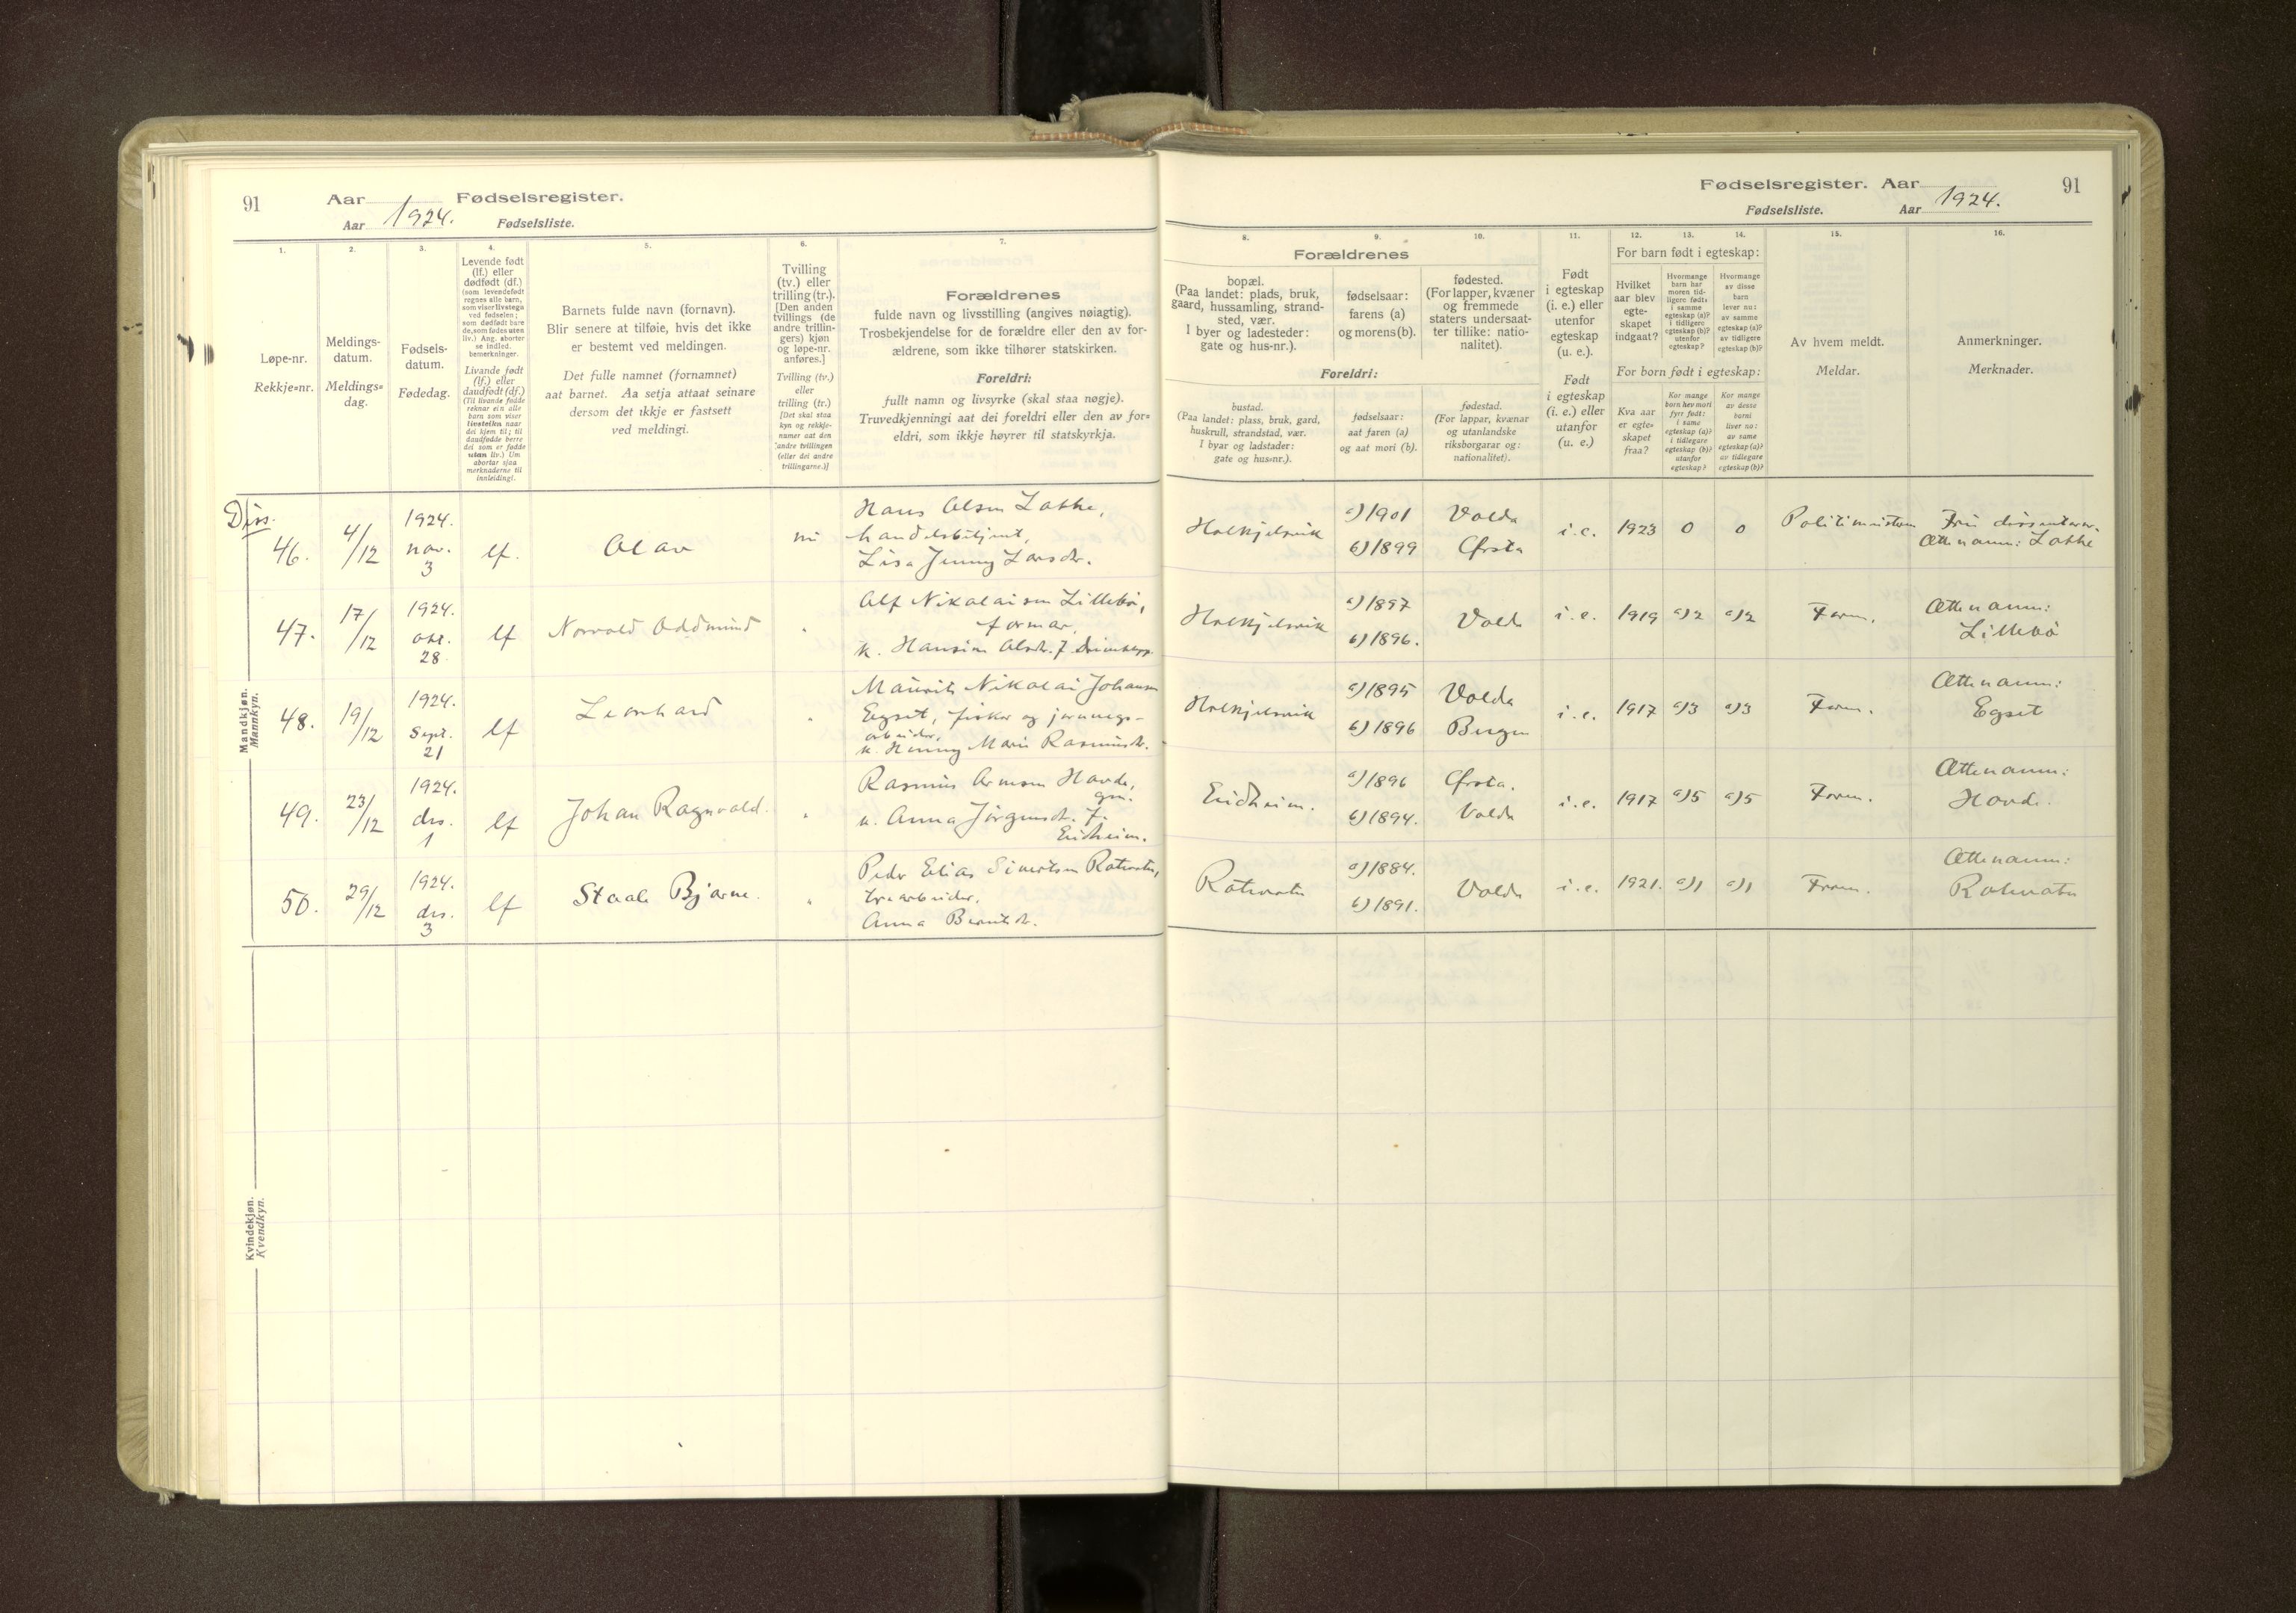 91
Aar 1924. Fødselsregister.
Aar Fødselsliste.
1.
2.
3.
4.
5.
6.
7.
Løpe-nr.
Rekkje=nr.
Meldings-
datum.
Meldings=
dag.
Fødsels-
datum.
Fødedag.
Levende født
(lf.) eller
dødfødt (df.)
(som levendefødt
regnes alle barn,
som viser livstegn
ved fødselen;
som dødfødt bare
de, som fødes uten
liv.) Ang. aborter
se indled.
bemerkninger.
Livande født
(lf.) eller
daudfødt (df.)
(Til livande fødde
reknar ein alle
barn som viser
livsteikn naar
dei kjem til; til
daudfødde berre
dei som er fødde
utan liv.) Um
abortar sjaa
merknaderne til
innleidingi.
Barnets fulde navn (fornavn).
Blir senere at tilføie, hvis det ikke
er bestemt ved meldingen.
Det fulle namnet (fornamnet)
aat barnet. Aa setja attaat seinare
dersom det ikkje er fastsett
ved meldingi.
Tvilling
(tv.) eller
trilling (tr.).
[Den anden
tvillings (de
andre trillin-
gers) kjøn
og løpe-nr.
anføres.]
Tvilling (tv.)
eller
trilling (tr.)
[Det skal staa
kyn og rekkje-
numer aat den
andre tvillingen
(eller dei andre
trillingarne.)]
Forældrenes
fulde navn og livsstilling (angives nøiagtig).
Trosbekjendelse for de forældre eller den av for-
ældrene, som ikke tilhører statskirken.
Foreldri:
fullt namn og livsyrke (skal staa nøgje).
Truvedkjenningi aat dei foreldri eller den av for=
eldri, som ikkje høyrer til statskyrkja.
Mandkjøn.
Mannkyn.
Kvindekjøn.
Kvendkyn.
Diss.
46.
4/12
1924.
nov.
3
lf.
Olav
Hans Olsen Lathe,
handelsbetjent,
Lisa Jenny Larsdr.
47.
17/12
1924.
okt.
28
lf
Norvald Oddmund
Alf Nikolaisen Lillebø,
formar,
k. Hansine Olsdr. f.
48.
19/12
1924.
Sept.
21
lf
Leonhard
Maurits Nikolai Johansen
Egset, fisker og jarnvegs-
arbeider,
k. Henny Marie Rasmusdr.
49.
23/12
1924.
des.
1
lf
Johan Ragnvald.
Rasmus Arnesen Hovde,
gm.
k. Anna Jørgensdr. f.
Eidheim.
50.
29/12
1924.
des.
3
lf
Staale Bjarne.
Peder Elias Sivertsen Rotevatn,
trearbeider.
Anna Berntsdr.
Fødselsregister. Aar 1924.
91
Fødselsliste. Aar
8.
9.
10.
11.
12.
13.
14.
15.
16.
Forældrenes
bopæl.
(Paa landet: plads, bruk,
gaard, hussamling, strand-
sted, vær.
I byer og ladesteder:
gate og hus-nr.).
fødselsaar:
farens (a)
og morens (b).
fødested.
(For lapper, kvæner
og fremmede
staters undersaat-
ter tillike: natio-
nalitet).
Foreldri:
bustad.
(Paa landet: plass, bruk, gard,
huskrull, strandstad, vær.
I byar og ladstader:
gate og hus=nr.).
fødselsaar:
aat faren (a)
og aat mori (b).
fødestad.
(For lappar, kvænar
og utanlandske
riksborgarar og:
nationalitet).
Født
i egteskap
(i. e.) eller
utenfor
egteskap
(u. e.).
Født
i egteskap
(i. e.) eller
utanfor
(u. e.)
For barn født i egteskap:
Hvilket
aar blev
egte-
skapet
indgaat?
Hvormange
barn har
moren tid-
ligere født:
i samme
egteskap (a)?
i tidligere
egteskap (b)?
utenfor
egteskap?
Hvormange
av disse
barn
lever nu:
av samme
egteskap (a)?
av tidligere
egteskap (b)?
For born født i egteskap:
Kva aar
er egte=
skapet
fraa?
Kor mange
born hev mori
fyrr født:
i same
egteskap (a)?
i tidlegare
egteskap (b)?
utanfor
egteskap?
Kor mange
av desse
borni
liver no:
av same
egteskap (a)?
av tidlegare
egteskap (b)?
Av hvem meldt.
Meldar.
Anmerkninger.
Merknader.
Halkjelsvik
a) 1901
b) 1899
Volda
Ørsta
i. e.
1923
0
0
Politimesteren
Frie dissentarar.
Ættenamn: Lathe
Halkjelsvik
a) 1897
b) 1896.
Volda
i. e.
1919
a) 2
a) 2
Foren.
Ættenamn:
Lillebø
Halkjelsvik
a) 1895
b) 1896
Volda
Bergen
i. e.
1917
a) 3
a) 3
Foren.
Ættenamn:
Egset
Eidheim.
a) 1896
b) 1894.
Ørsta.
Volda
i. e.
1917
a) 5
a) 5
Foren.
Ættenamn:
Hovde.
Rotevatn
a) 1884.
b) 1891.
Volda
i. e.
1921.
a) 1
a) 1
Foren.
Ættenamn:
Rotevatn